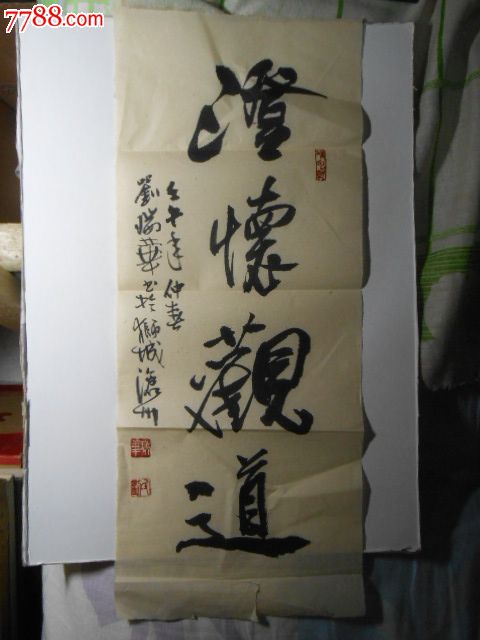 7788.com
澄懷觀道
壬午年仲春
劉瑞華书於獅城滄州